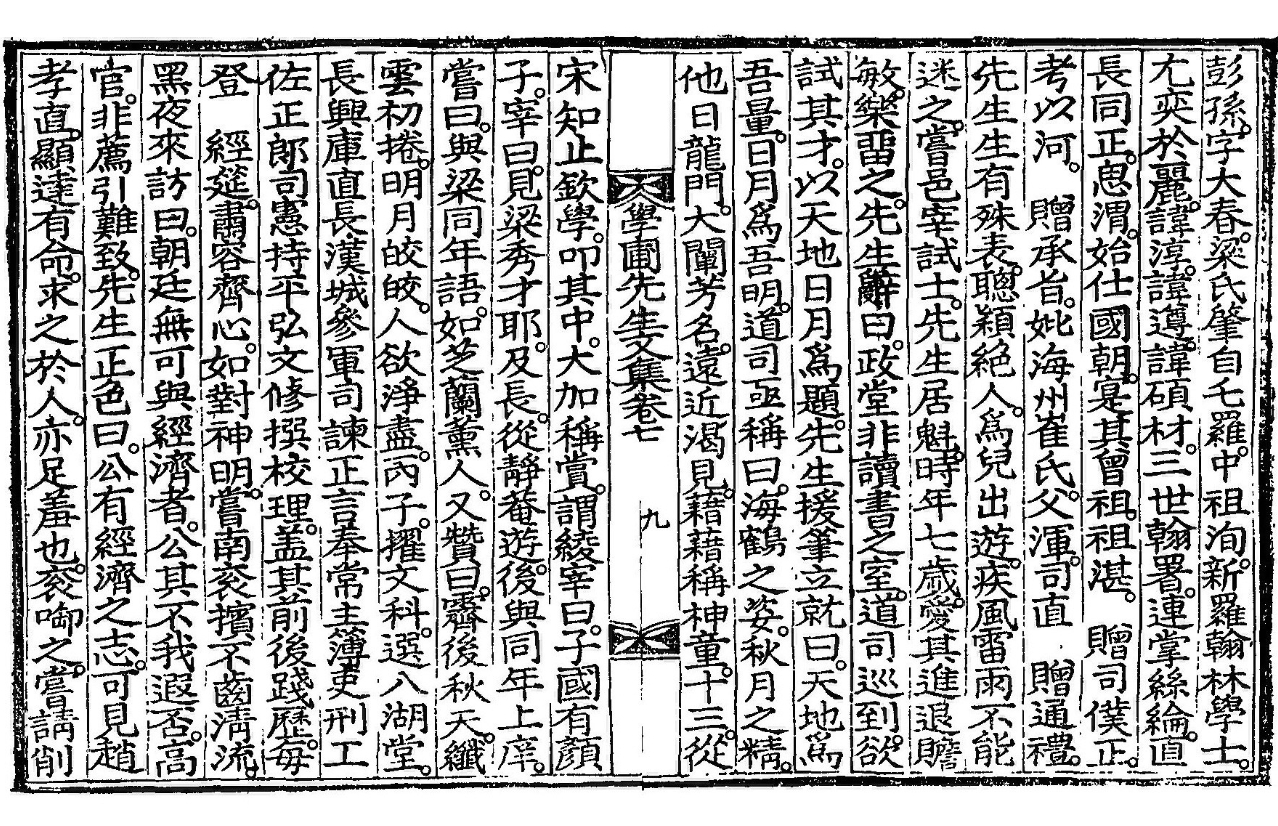 彭孫。字大春。梁氏肇自乇羅。中祖洵。新羅翰林學士。
尢奕於麗。諱淳。諱諱遵。諱碩材。三世翰署。連掌絲綸。直
長同正。思渭。始仕國朝。寔其曾祖。祖湛。 贈司僕正。
考以河。 贈承旨。妣海州崔氏。父渾。司直 贈通禮。
先生生有殊表。聰穎絕人。爲兒出遊。疾風雷雨不能
迷之。嘗邑宰試士。先生居魁。時年七歲。愛其進退贍
敏。樂畱之。先生辭曰。政堂非讀書之室。道司巡到。欲
試其才。以天地日月爲題。先生援筆立就曰。天地爲
吾量。日月爲吾明。道司亟稱曰。海鶴之姿。秋月之精。
他日龍門。大闡芳名。遠近渴見。藉藉稱神童。十三。從
學圃先生文集卷七
九
宋知止欽學。叩其中。大加稱賞。謂綾宰曰。子國有顏
子。宰曰。見梁秀才耶。及長。從靜菴遊。後與同年上庠。
嘗曰。與梁同年語。如芝蘭薰人。又贊曰。霽後秋天。纖
雲初捲。明月皎皎。人欲淨盡。丙子。擢文科。選八湖堂。
長興庫直長漢城參軍司諫正言奉常主簿吏刑工
佐正郞司憲持平弘文修撰校理。盖其前後踐歷。每
登 經筵。肅容齊心。如對神明。嘗南衮擯不齒淸流。
黑夜來訪曰。朝廷無可與經濟者。公其不我遐否。高
官。非薦引難致。先生正色曰。公有經濟之志。可見趙
孝直。顯達有命。求之於人。亦足羞也。衮啣之。嘗請削